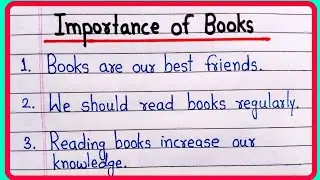 Importance of Books
1. Books are our best friends.
2. We should read books regularly.
3. Reading books increase our
knowledge.